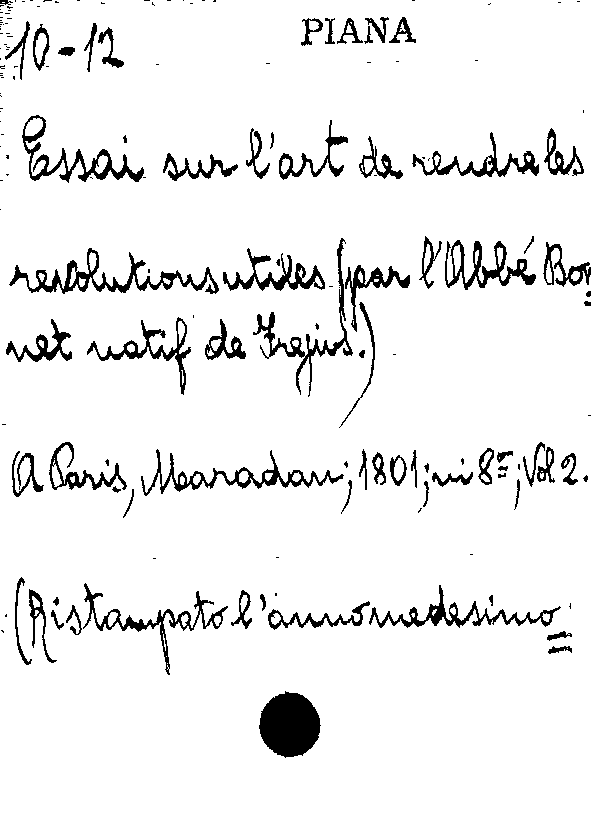 PIANA
10-12
Essai sur l'art de rendre les
revolutions utiles (par l'Abbé Bon=
net natif de Frejus.)
A Paris, Maradan; 1801; in 8º; Vol 2.
(Ristampato l'anno medesimo=